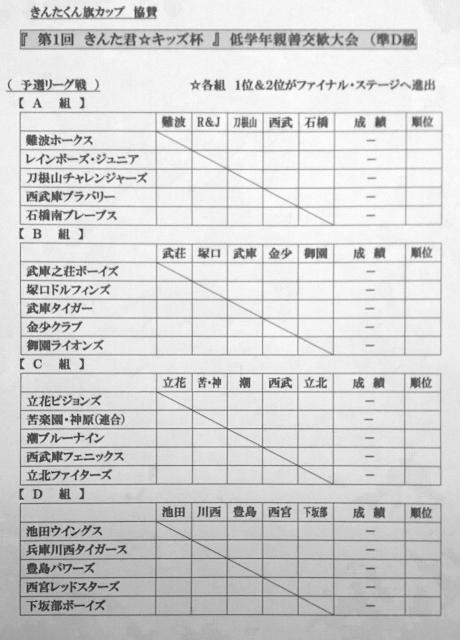 きんたくん旗カップ 協賛
『 第1回 きんた君☆キッズ杯 』 低学年親善交歓大会 （準D級
（ 予選リーグ戦 ） ☆各組 1位＆2位がファイナル・ステージへ進出
【 A 組 】
難波 R&J 刀根山 西武 石橋 成績 順位
難波ホークス －
レインボーズ・ジュニア －
刀根山チャレンジャーズ －
西武庫ブラバリー －
石橋南ブレーブス －
【 B 組 】
武荘 塚口 武庫 金少 御園 成績 順位
武庫之荘ボーイズ －
塚口ドルフィンズ －
武庫タイガー －
金少クラブ －
御園ライオンズ －
【 C 組 】
立花 苦・神 潮 西武 立北 成績 順位
立花ピジョンズ －
苦楽園・神原(連合) －
潮ブルーナイン －
西武庫フェニックス －
立北ファイターズ －
【 D 組 】
池田 川西 豊島 西宮 下坂部 成績 順位
池田ウイングス －
兵庫川西タイガース －
豊島パワーズ －
西宮レッドスターズ －
下坂部ボーイズ －